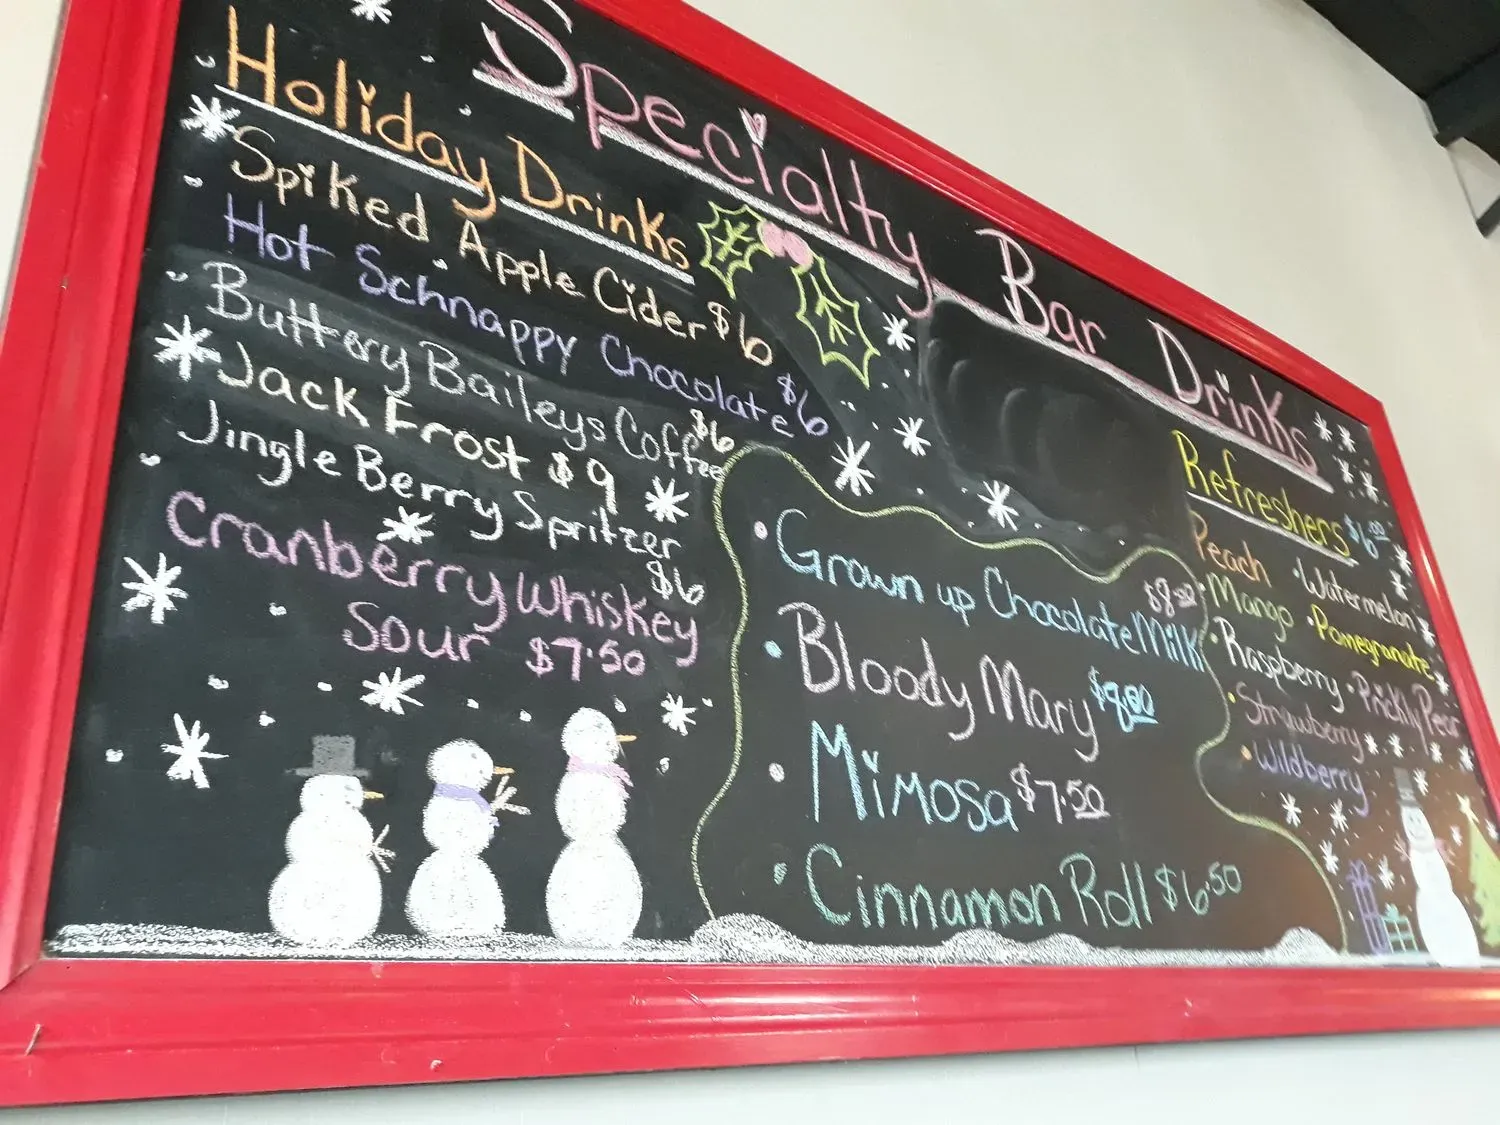 Specialty Bar Drinks
Holiday Drinks
Spiked Apple Cider $6
Hot Schnappy Chocolate $6
Buttery Baileys Coffee $6
Jack Frost $9
Jingle Berry Spritzer $6
Cranberry Whiskey
Sour $7.50
• Grown up Chocolate Milk $8.00
• Bloody Mary $8.00
• Mimosa $7.50
• Cinnamon Roll $6.50
Refreshers $6.00
Peach • Watermelon
• Mango • Pomegranate
• Raspberry • Prickly Pear
• Strawberry
• Wildberry